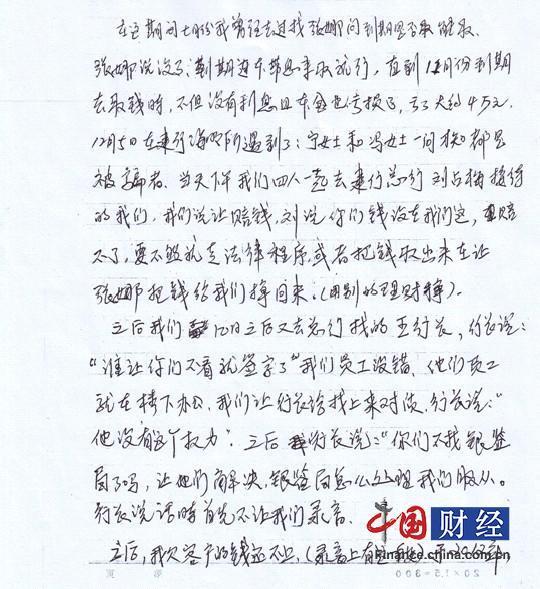 在这期间七月份我曾经去过找张娜问到期是否取能取、
张娜说没事、到期连本带息来取就行，直到12月份到期
去取钱时，不但没有利息且本金也亏损了，亏了大约4万元.
12月5日在建行海 所遇到了：宁女士和冯女士一问换知都是
被骗者、当天下午我们四人一起去建行总行刘占梅接待
的我们，我们说让赔钱，刘说你们钱没在我们这，赔
不了，要不你就走法律程序，或者把钱取出来在让
张娜把钱给我们挣回来.（用别的理财挣）.
之后我们12日之后又去总行找的王行长，行长说：
“谁让你们不看就签字了”我们员工没错、他们员工
就在楼下办，我们让行长给找上来对质，行长说：“
他没有这个权力”. 之后行长说：“你们不找银监
局了吗，让他们解决，银监局怎么处理我们服从。
行长说话时首先不让我们录音、
之后，我欠客户的钱还不上，（录音上有
中国财经
finance.china.com.cn
20×15=300